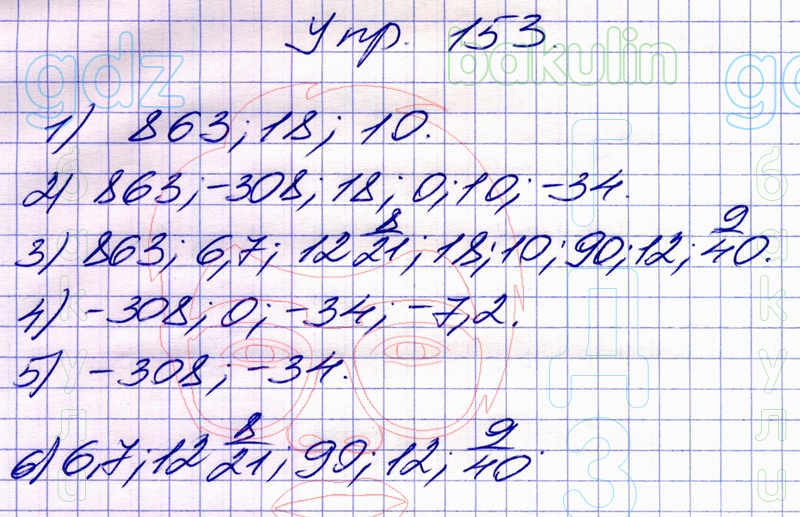 Упр. 153.
gdz bakulin gdz
1) 863; 18; 10.
2) 863; -308; 18; 0; 10; -34.
3) 863; 6,7; 12 8/21; 18; 10; 90; 12; 9/40.
4) -308; 0; -34; -7,2.
5) -308; -34.
6) 6,7; 12 8/21; 90; 12; 9/40.
ГДЗ